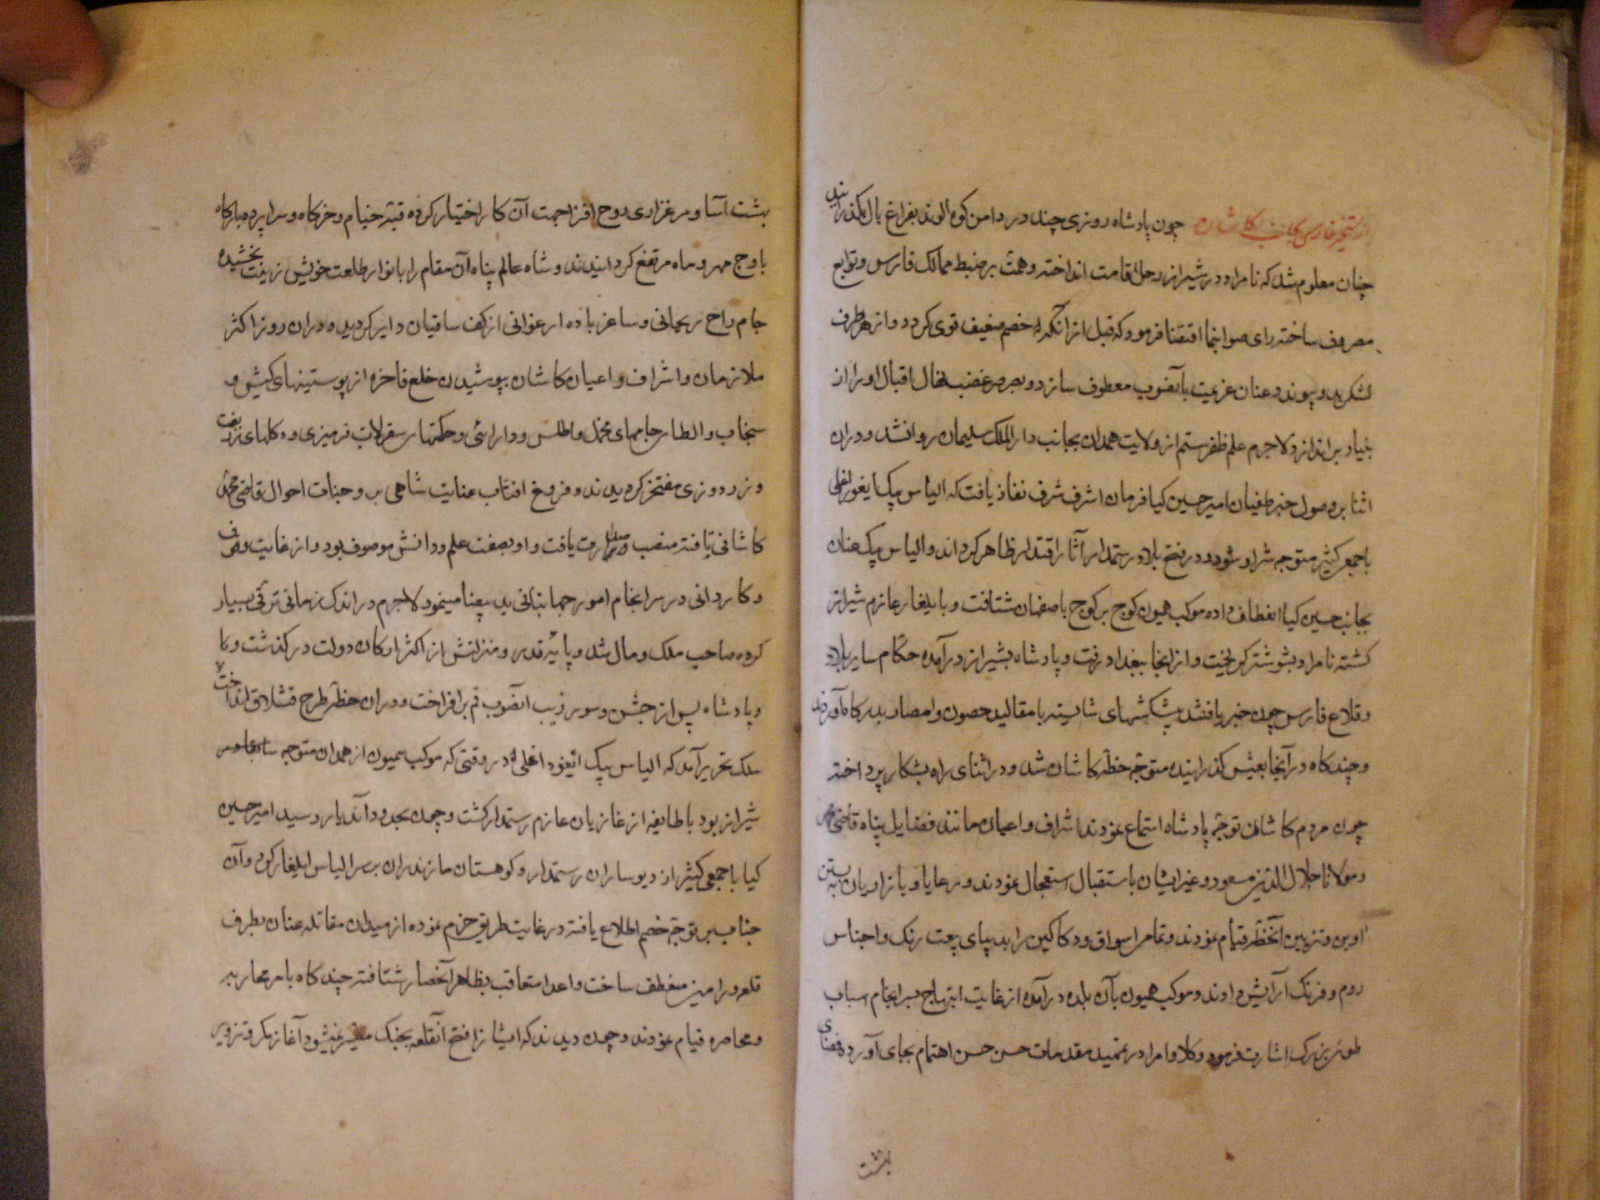 چون پادشاه روزی چند در دامن کوه الوند بفراغ بال بگذرانید
چنان معلوم شد که نامراد در شیراز رحل اقامت انداخته و همت بر ضبط ممالک فارس و توابع
مصروف ساخته رای صوابنما اقتضا فرمود که قبل از آنکه خصم ضعیف قوی کردد و از هر طرف
لشکر بدو پیوندد عنان عزیمت بآنصوب معطوف سازد و بصرصر غضب نهال اقبال او را از
بنیاد براندازد لاجرم علم ظفر ستم از ولایت همدان بجانب دار الملک سلیمان روانشد و در آن
اثنا بر وصول خبر طغیان امیر حسین کیا فرمان اشرف شرف نفاذ یافت که الیاس بیک ایغور اغلی
با جمعی کثیر متوجه شر او شود و در فتح بلاد رستمدار آثار اقتدار ظاهر کرداند و الیاس بیک عنان
بجانب حسین کیا انعطاف داده موکب همیون کوچ بر کوچ باصفهان شتافت و بایلغار عازم شیراز
کشته نامراد بشوشتر کریخت و از آنجا ببغداد رفت و پادشاه بشیراز درآمده حکام سایر بلاد
و قلاع فارس چون خبر یافتند پیشکشهای شایسته با مقالید حصون و امصار بدرکاه آوردند
و چند کاه در آنجا بعیش کذرانیده متوجه خطه کاشان شد و در اثنای راه بشکار پرداخته
چون مردم کاشان توجه پادشاه استماع نمودند اشراف و اعیان مانند فضایل پناه قاضی محمد
و مولانا جلال الدین مسعود و غیر ایشان باستقبال استعجال نمودند و رعایا و بازاریان به بستن
آذین و تزیین آنخطه قیام نمودند و تمامر اسواق و دکاکین را بدیبای هفت رنک و اجناس
روم و فرنک آرایش دادند و موکب همیون بآن بلده درآمده از غایت ابتهاج بسرانجام اسباب
طوی بزرک اشارت فرمود وکلا و امرا در تمهید مقدمات جشن حسن اهتمام بجای آورده فضای
بهشت
بهشت آسا و مرغزاری روح افزا جهت آن کار اختیار کرده قبه خیام و خرکاه و سراپرده بارکاه
باوج مهر و ماه مرتفع کردانیدند و شاه عالم پناه آن مقام را بانوار طلعت خویش زینت بخشیده
جام راح ریحانی و ساغر باده ارغوانی از کف ساقیان دایر کردید و در آن روز اکثر
ملازمان و اشراف و اعیان کاشان بپوشیدن خلع فاخره از پوستینهای کیش و
سنجاب و جامهای مخمل و اطلس و دارائی و سقرلاب قرمیزی و کلهای زربفت
و زردوزی مفتخر کردیدند و فروغ آفتاب عنایت شاهی بر وجنات احوال قاضی محمد
کاشانی تافته منصب صدارت یافت و او بصفت علم و دانش موصوف بود و از غایت وقوف
و کاردانی در سرانجام امور جهانبانی ید بیضا مینمود لاجرم در اندک زمانی ترقی بسیار
کرده صاحب ملک و مال شد و پایه قدر و منزلتش از اکثر ارکان دولت درکذشت
و پادشاه پس از جشن و سور زیب آنصوب قم برافراخت و در آن خطه طرح قشلاق انداخت
سلک تحریر آمد که الیاس بیک ایغور اغلی در وقتی که موکب همیون از همدان متوجه
شیراز بود با طایفه از غازیان عازم رستمدار کشت و چون بحدود آندیار رسید امیر حسین
کیا با جمعی کثیر از دیوساران رستمدار و کوهستان مازندران بر سر الیاس ایلغار کرد و آن
جناب بر توجه خصم اطلاع یافته در غایت طریق حزم نموده از میدان مقاتله عنان بطرف
قلعه ورامین منعطف ساخت و اعدا متعاقب بظاهر آنحصار شتافته چند کاه بامر محاربه
و محاصره قیام نمودند و چون دیدند که ایشان را فتح آنقلعه بجنک میسر نمیشود آغاز مکر و تزویر